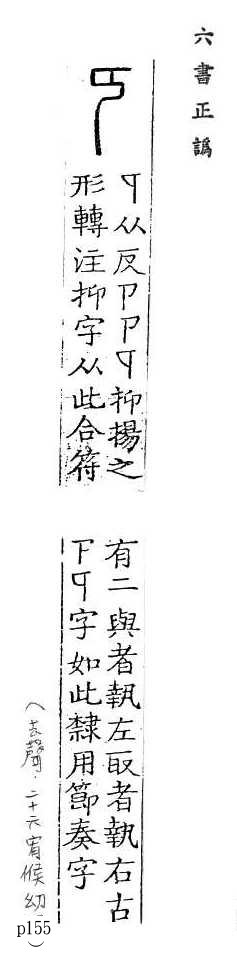 六書正譌
𠨎从反卪卪𠨎抑揚之
形轉注抑字从此合符
有二與者執左取者執右古
卪𠨎字如此隸用節奏字
(去聲.二十六宥候幼
p155)